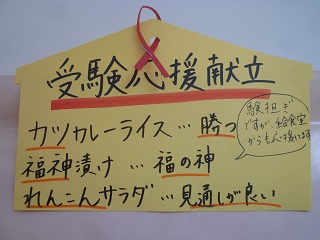 受験応援献立
カツカレーライス…勝つ
福神漬け…福の神
れんこんサラダ…見通しが良い
験担ぎ
ですが、給食室
からも応援います